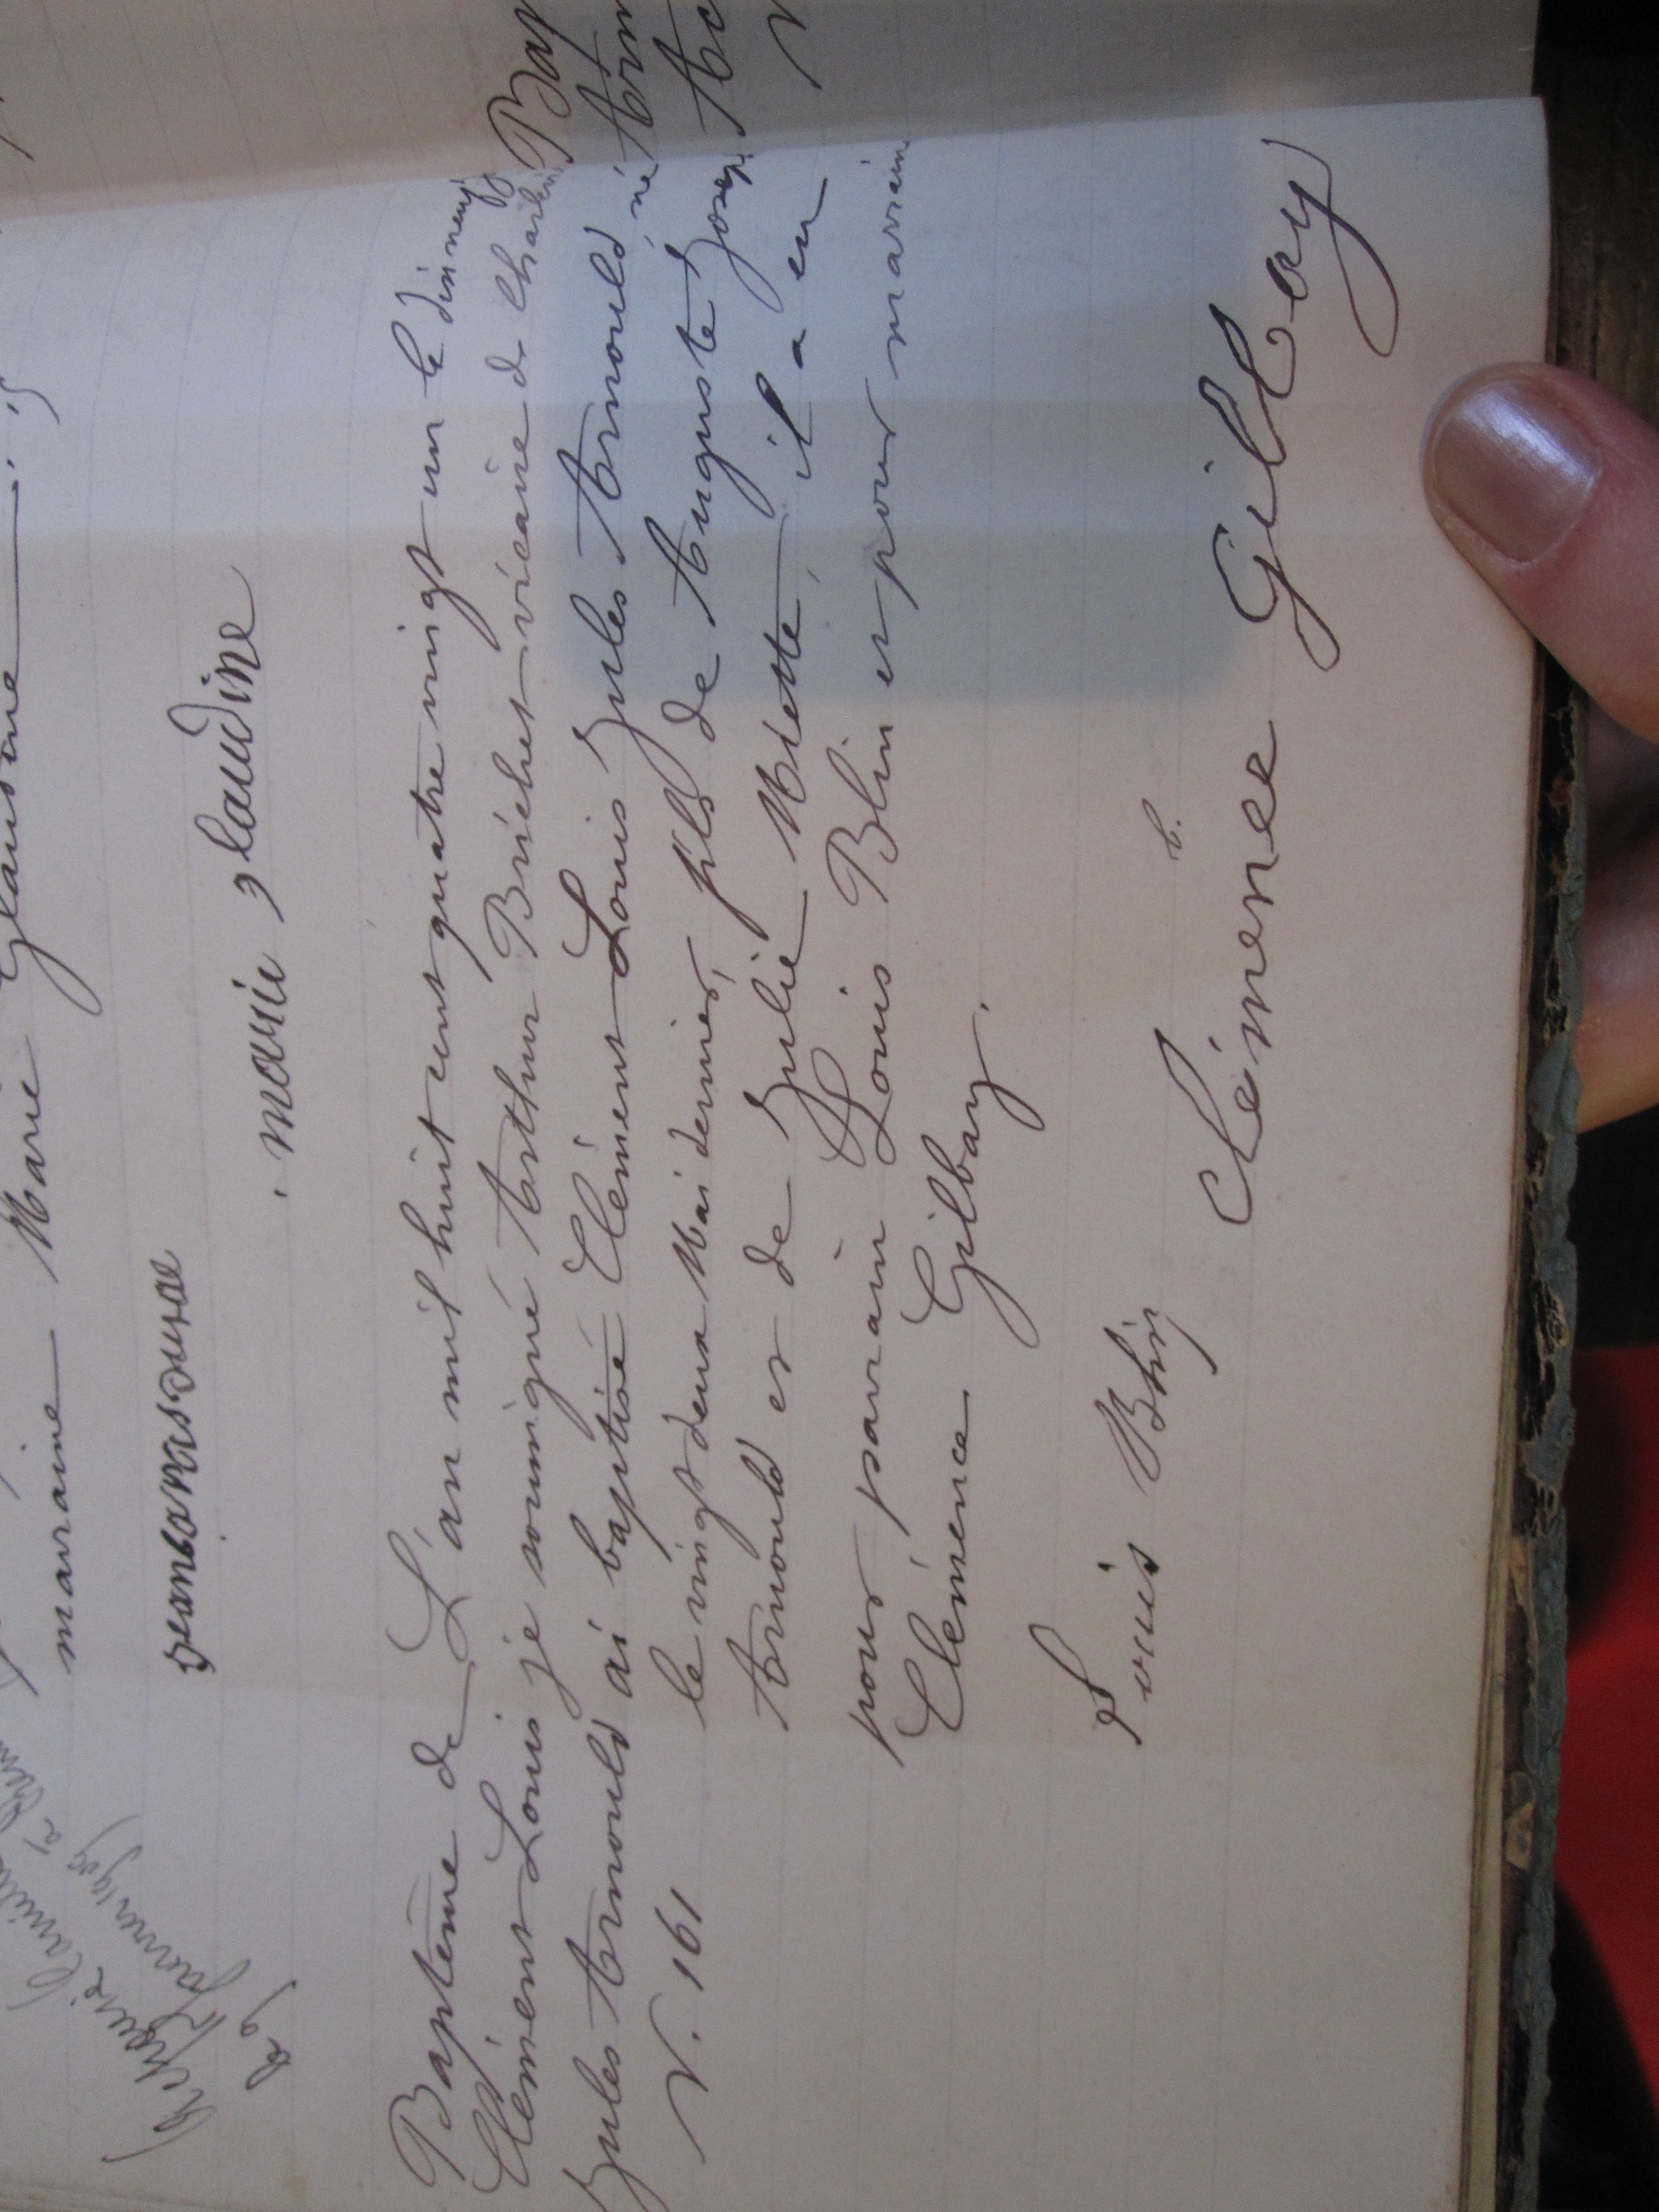 marraine Marie Claudine
à
le 9 Janvier 1909
marie claudine
Baptême de
Clément Louis
Jules Arnould
N. 161
L'an mil huit cent quatre vingt un le dix neuf
je soussigné Arthur Brichet vicaire de Charleville
ai baptisé Clément Louis Jules Arnould né
le vingt deux Mai dernier, fils de Auguste Joseph
Arnould et de Julie Miette, il a eu
pour parrain Louis Blin et pour marraine
Clémence Gilbay.
Louis Blin
b.
Clémence Gilbay
Bap